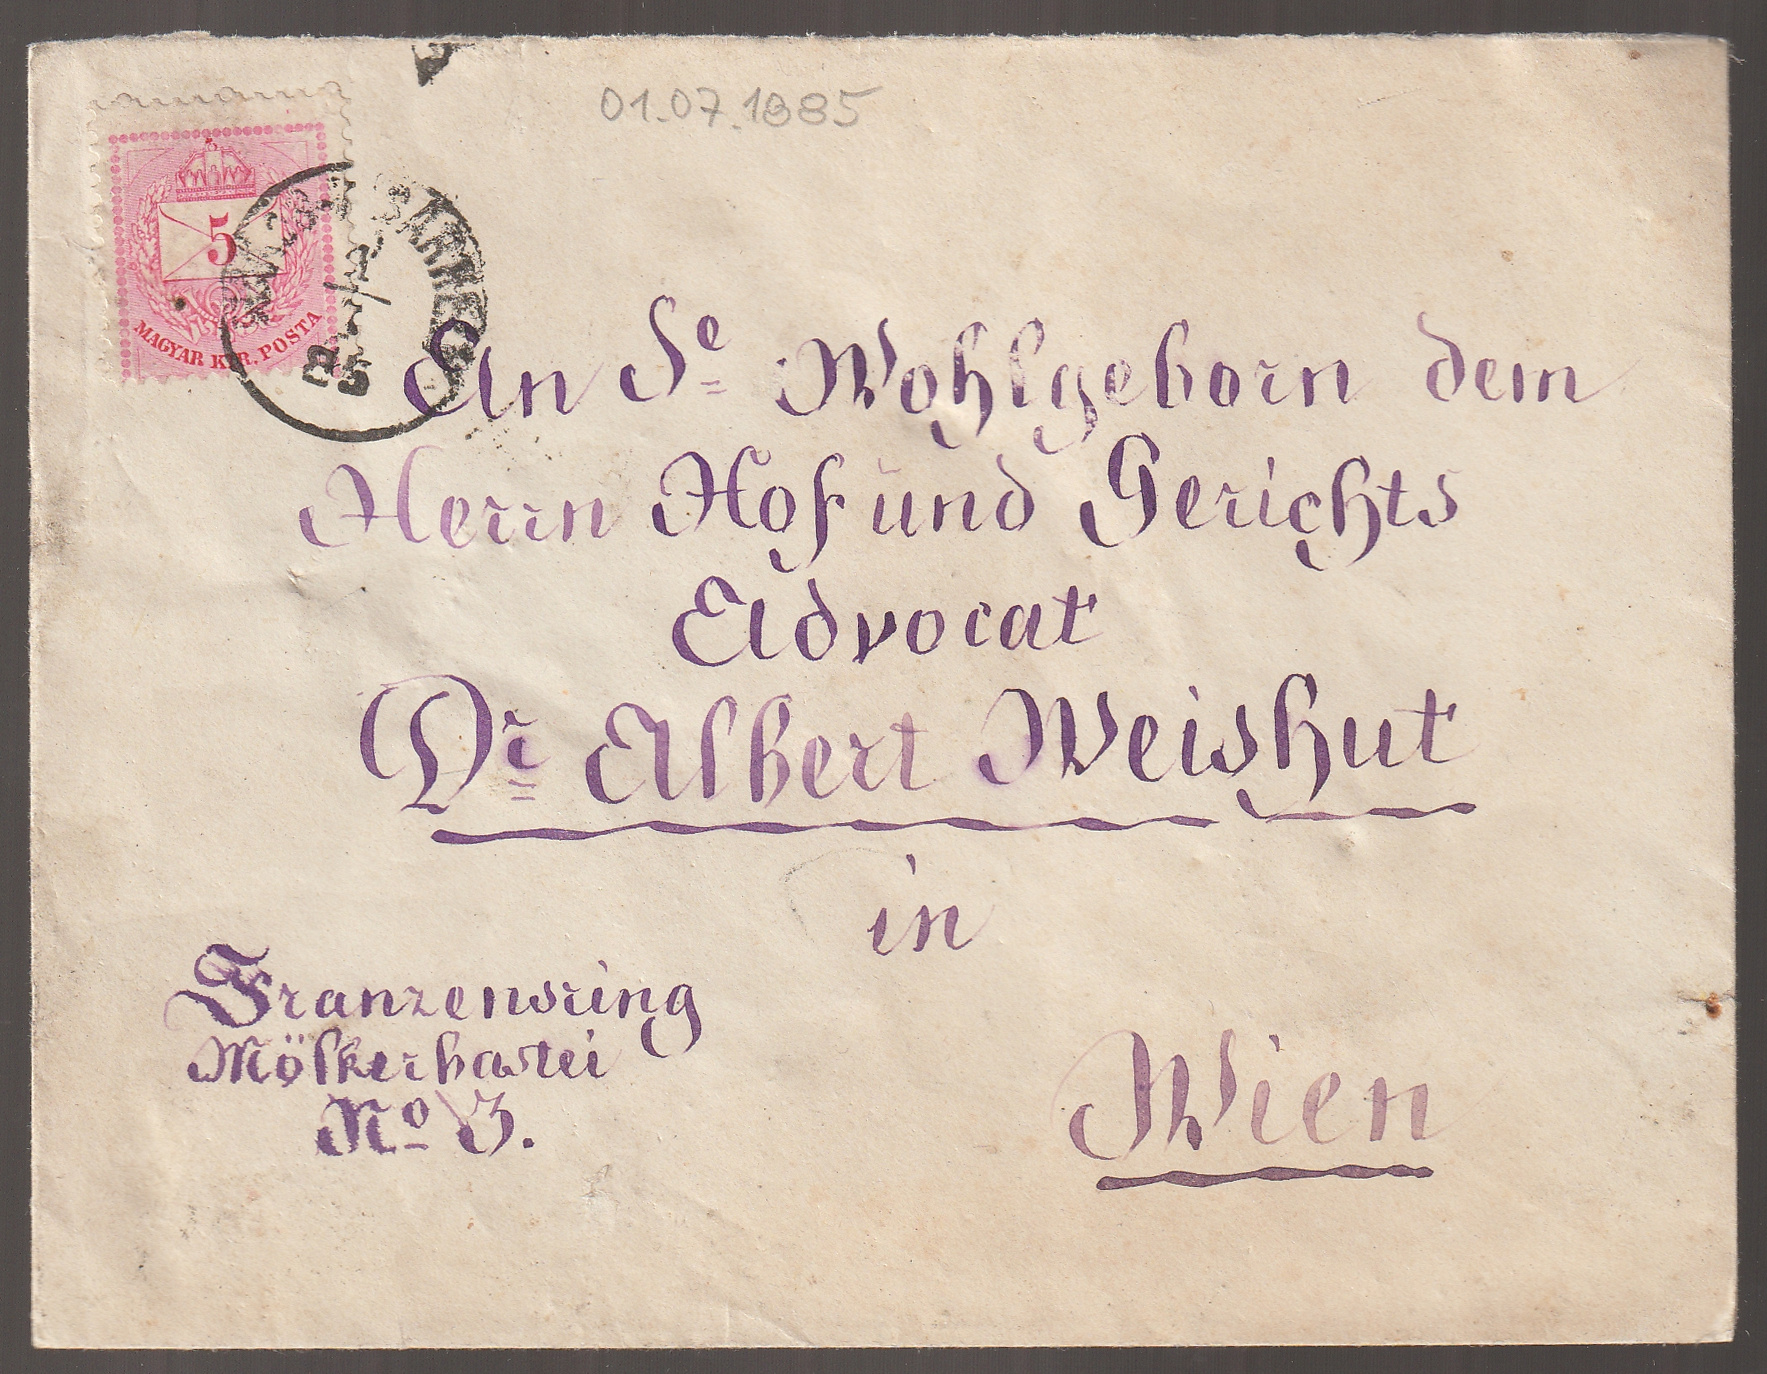 01.07.1885
5
MAGYAR KIR. POSTA
85
An Se Wohlgeborn dem
Herrn Hof und Gerichts
Advocat
Dr Albert Weishut
in
Franzensring
Mölkerbastei
No 3.
Wien